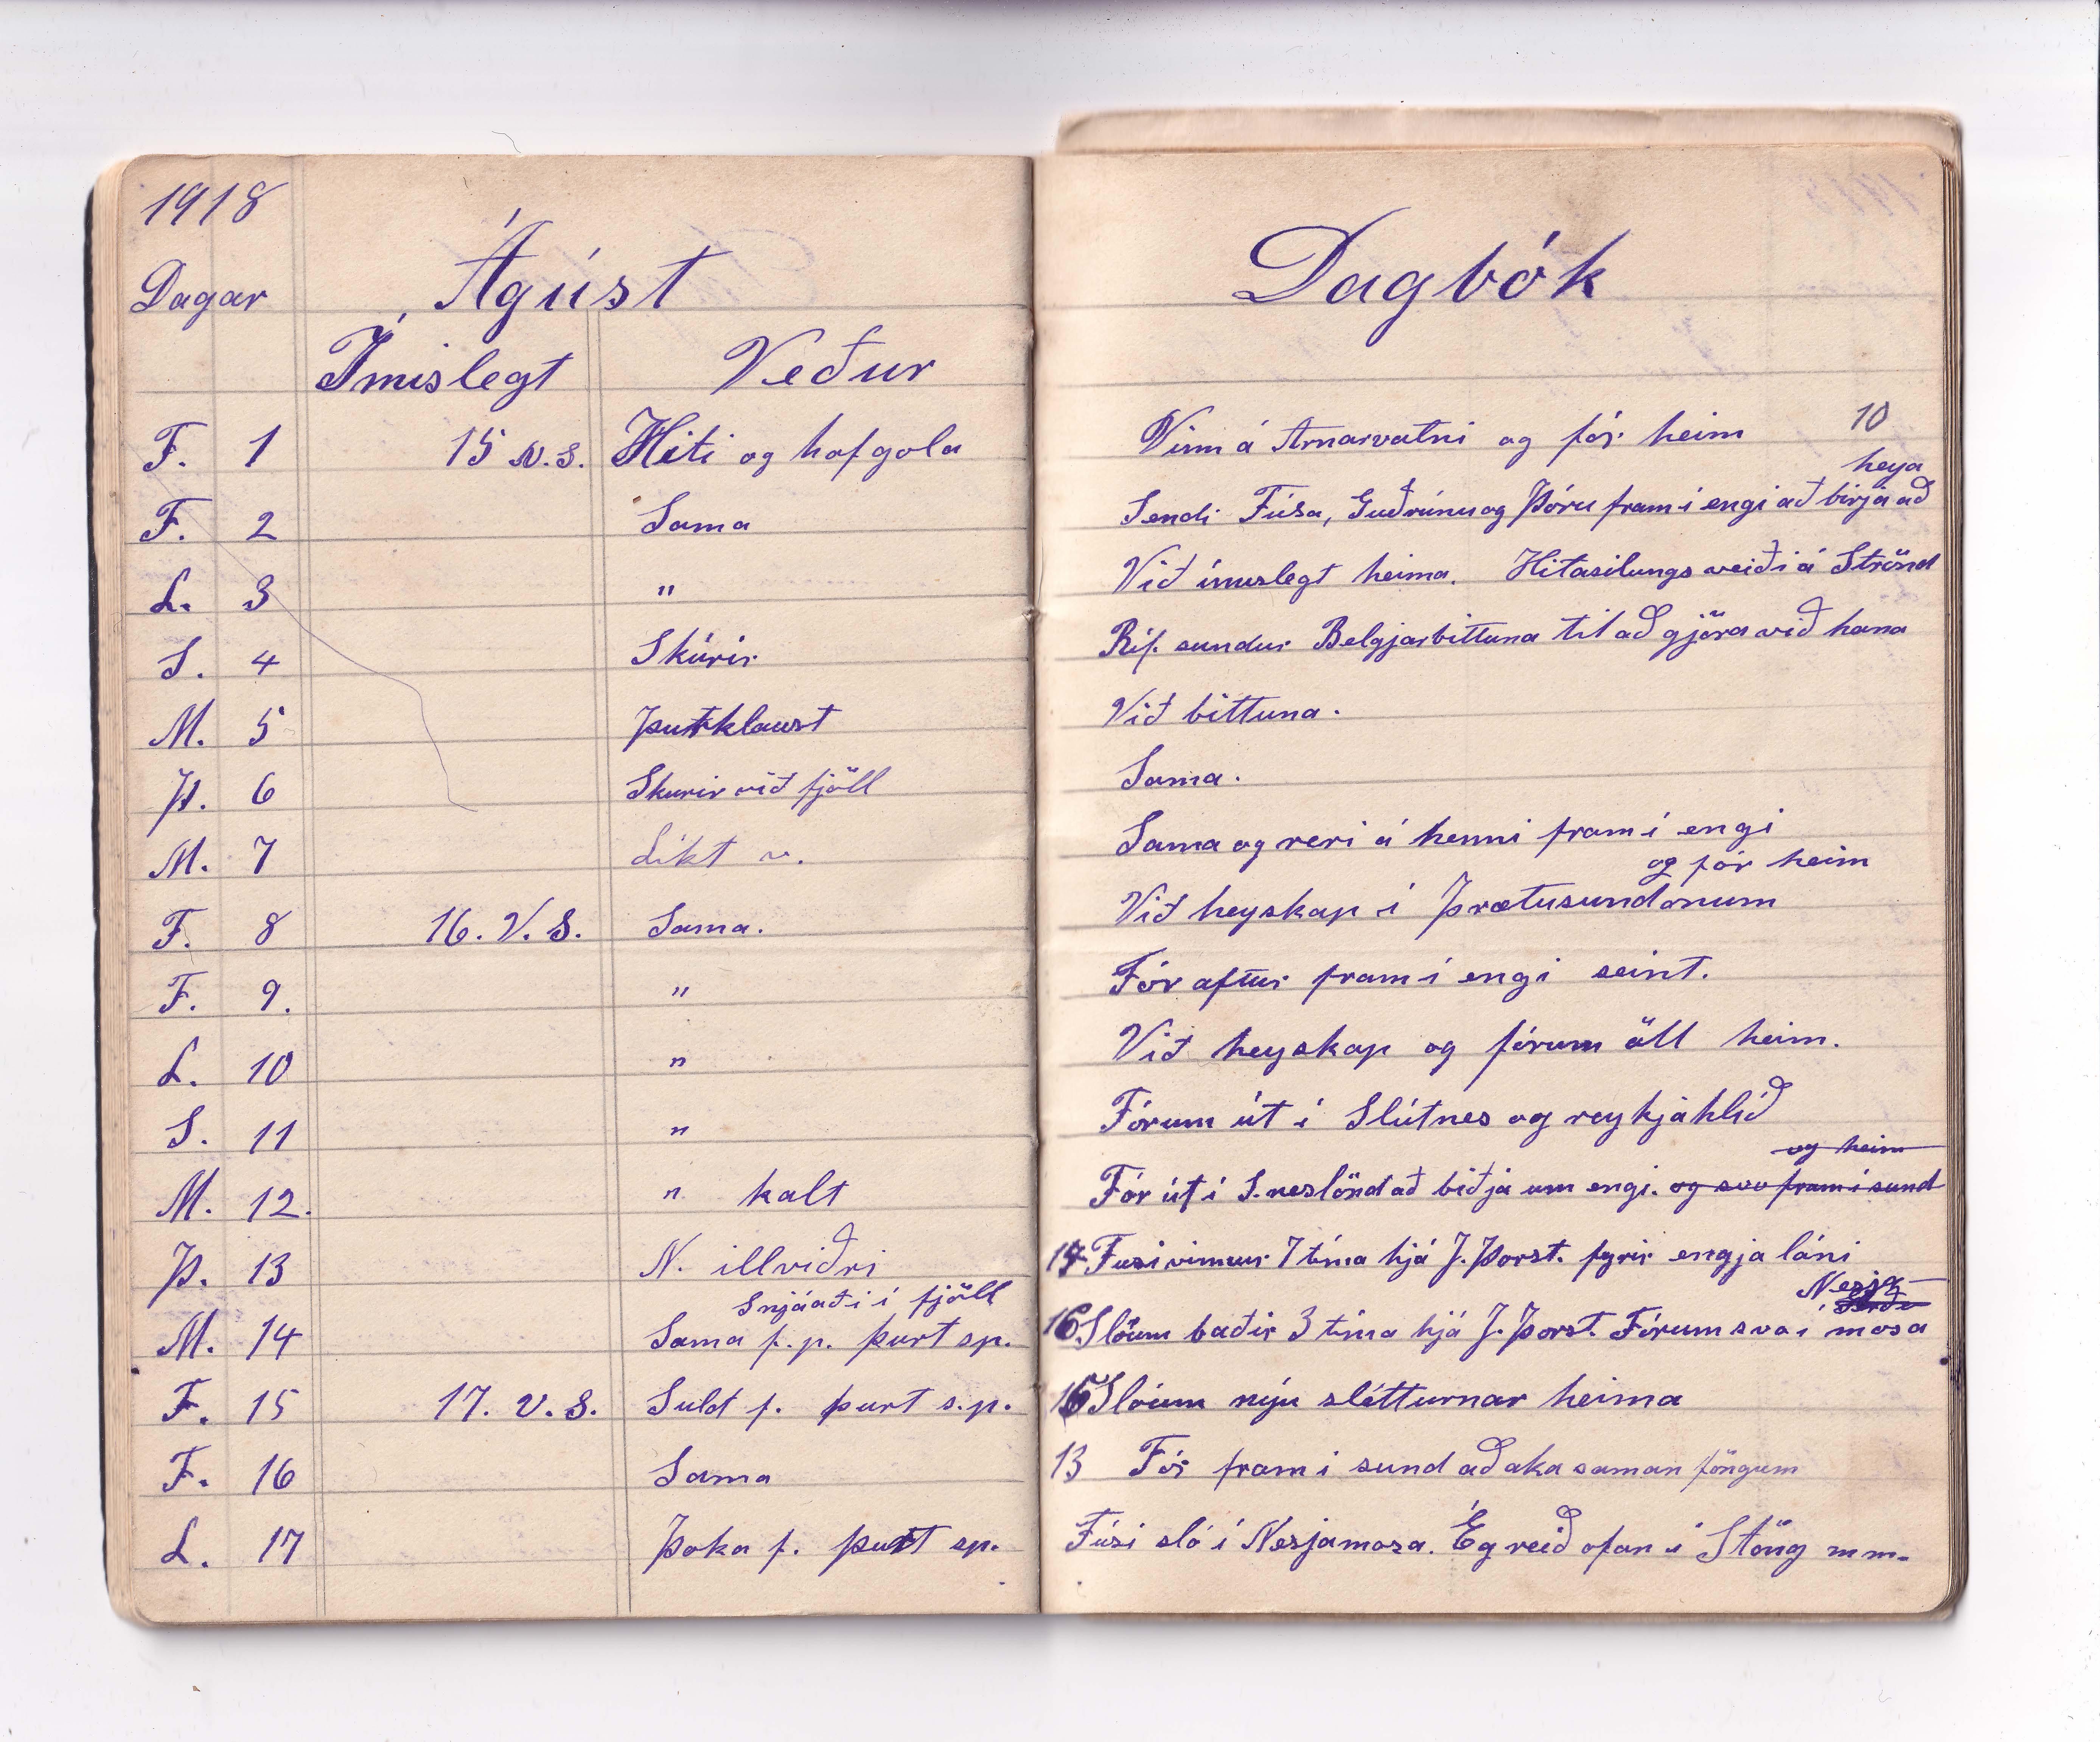 1918
Dagar
Ágúst
Ímislegt
Veður
F. 1 15 V.S. Hiti og hafgola
F. 2 Sama
L. 3 "
S. 4 Skúrir
M. 5 Þurklaust
Þ. 6 Skurir við fjöll
M. 7 Líkt v.
F. 8 16. V. S. Sama.
F. 9. "
L. 10 "
S. 11 "
M. 12. " kalt
Þ. 13 N. illviðri
Snjáaði í fjöll
M. 14 Sama f.p. þurt sp.
F. 15 17. V. S. Suld f. þurt s.p.
F. 16 Sama
L. 17 Þoka f. þurt sp.
Dagbók
10
Vinn á Arnarvatni og fór heim
heya
Sendi Fúsa, Guðrúnu og Þóru fram í engi að birja að
Við ímislegt heima. Hitasilungsveiði á Strönd
Ríf sundur Belgjarbittuna til að gjöra við hana
Við bittuna.
Sama.
Sama og reri á henni fram í engi
og fór heim
Við heyskap í Þrætusundonum
Fór aftur fram í engi seint.
Við heyskap og fórum öll heim.
Fórum út í Slútnes og reykjahlíð
og heim
Fór út í S.neslönd að biðja um engi. og svo fram í sund
Fusi vinnur 7 tíma hjá J. Þorst. fyrir engja láni
Nesja-
16 Slóum baðir 3 tíma hjá J. Þorst. Fórum svo í mosa
Slóum níju slétturnar heima
13 Fór fram í sund að aka saman föngum
Fúsi sló í Nesjamosa. Ég reið ofan í Stöng m m.